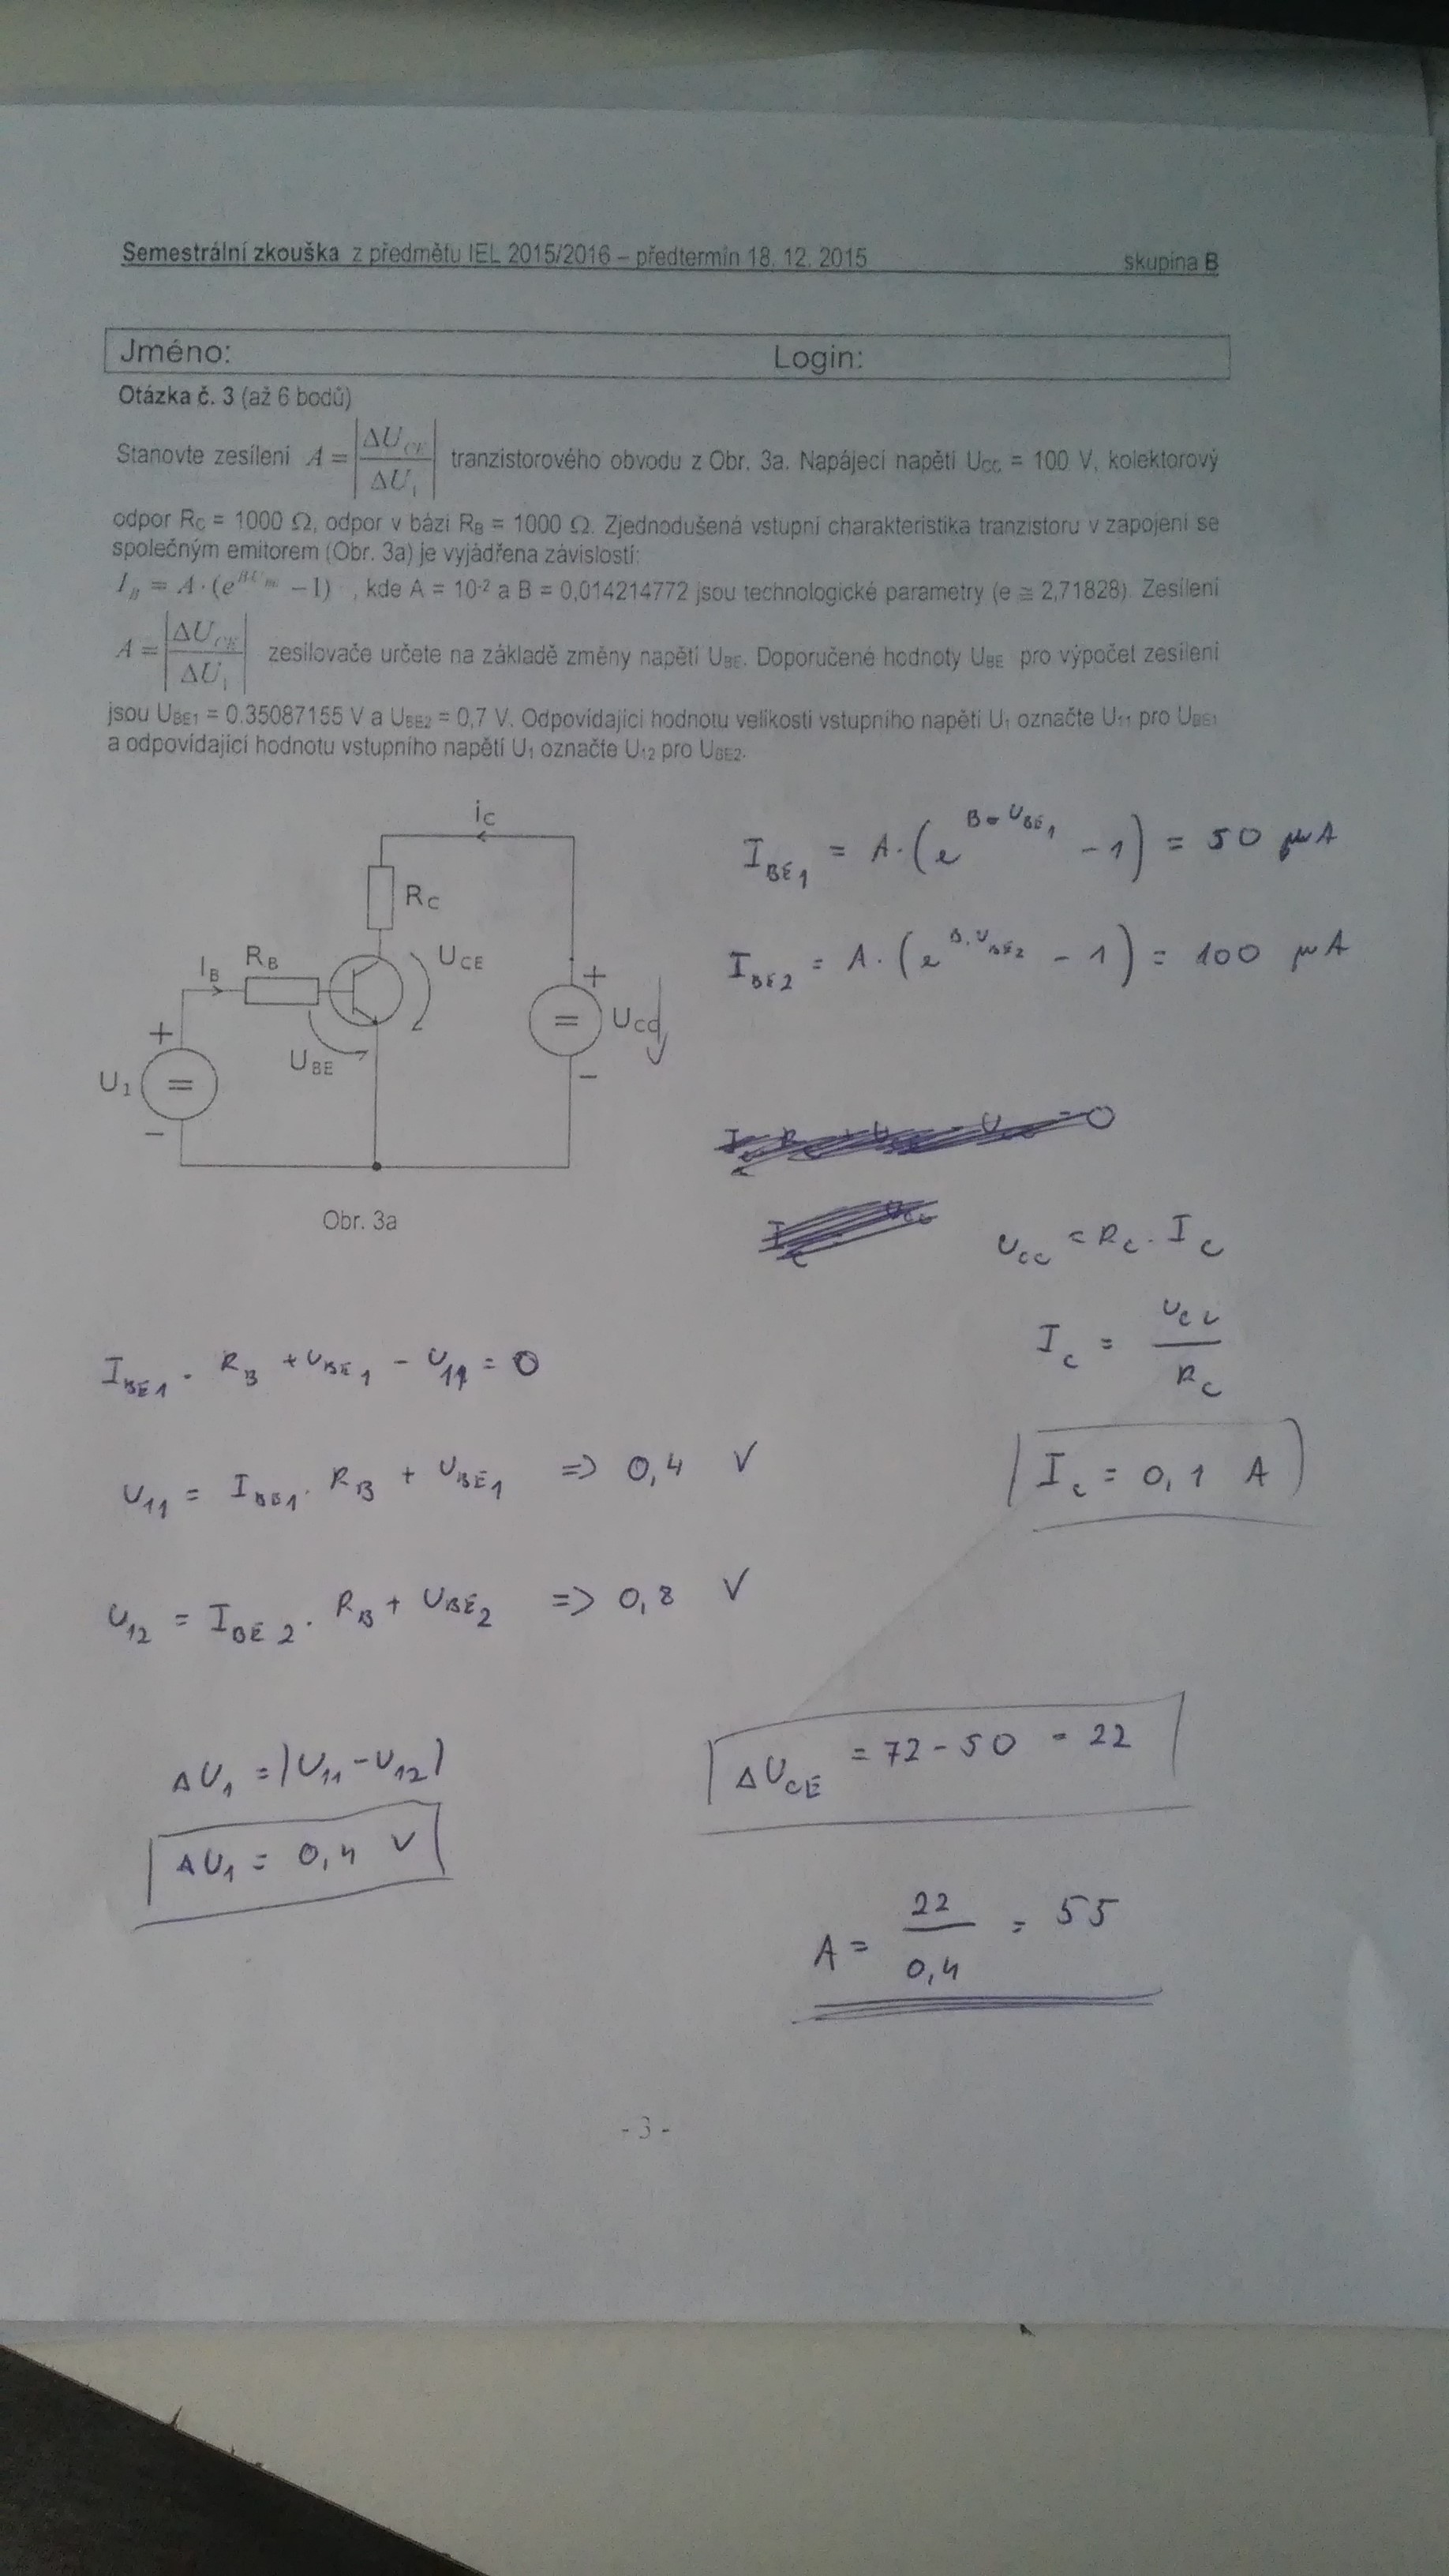 Semestrální zkouška z předmětu IEL 2015/2016 – předtermín 18. 12. 2015 skupina B
Jméno: Login:
Otázka č. 3 (až 6 bodů)
Stanovte zesílení A = |ΔU_CE / ΔU_1| tranzistorového obvodu z Obr. 3a. Napájecí napětí U_CC = 100 V, kolektorový
odpor R_C = 1000 Ω, odpor v bázi R_B = 1000 Ω. Zjednodušená vstupní charakteristika tranzistoru v zapojení se
společným emitorem (Obr. 3a) je vyjádřena závislostí:
I_B = A·(e^(B·U_BE) – 1) , kde A = 10^-2 a B = 0,014214772 jsou technologické parametry (e ≅ 2,71828). Zesílení
A = |ΔU_CE / ΔU_1| zesilovače určete na základě změny napětí U_BE. Doporučené hodnoty U_BE pro výpočet zesílení
jsou U_BE1 = 0.35087155 V a U_BE2 = 0,7 V. Odpovídající hodnotu velikosti vstupního napětí U_1 označte U_11 pro U_BE1
a odpovídající hodnotu vstupního napětí U_1 označte U_12 pro U_BE2.
i_C
R_C
U_CE
R_B
I_B
+
U_CC
=
–
U_BE
+
U_1
=
–
Obr. 3a
I_BE1 = A·(e^(B·U_BE1) – 1) = 50 μA
I_BE2 = A·(e^(B·U_BE2) – 1) = 100 μA
U_CC = R_C · I_C
I_C = U_CC / R_C
I_C = 0,1 A
I_BE1 · R_B + U_BE1 – U_11 = 0
U_11 = I_BE1 · R_B + U_BE1 => 0,4 V
U_12 = I_BE2 · R_B + U_BE2 => 0,8 V
ΔU_1 = |U_11 – U_12|
ΔU_1 = 0,4 V
ΔU_CE = 72 - 50 = 22
A = 22 / 0,4 = 55
- 3 -